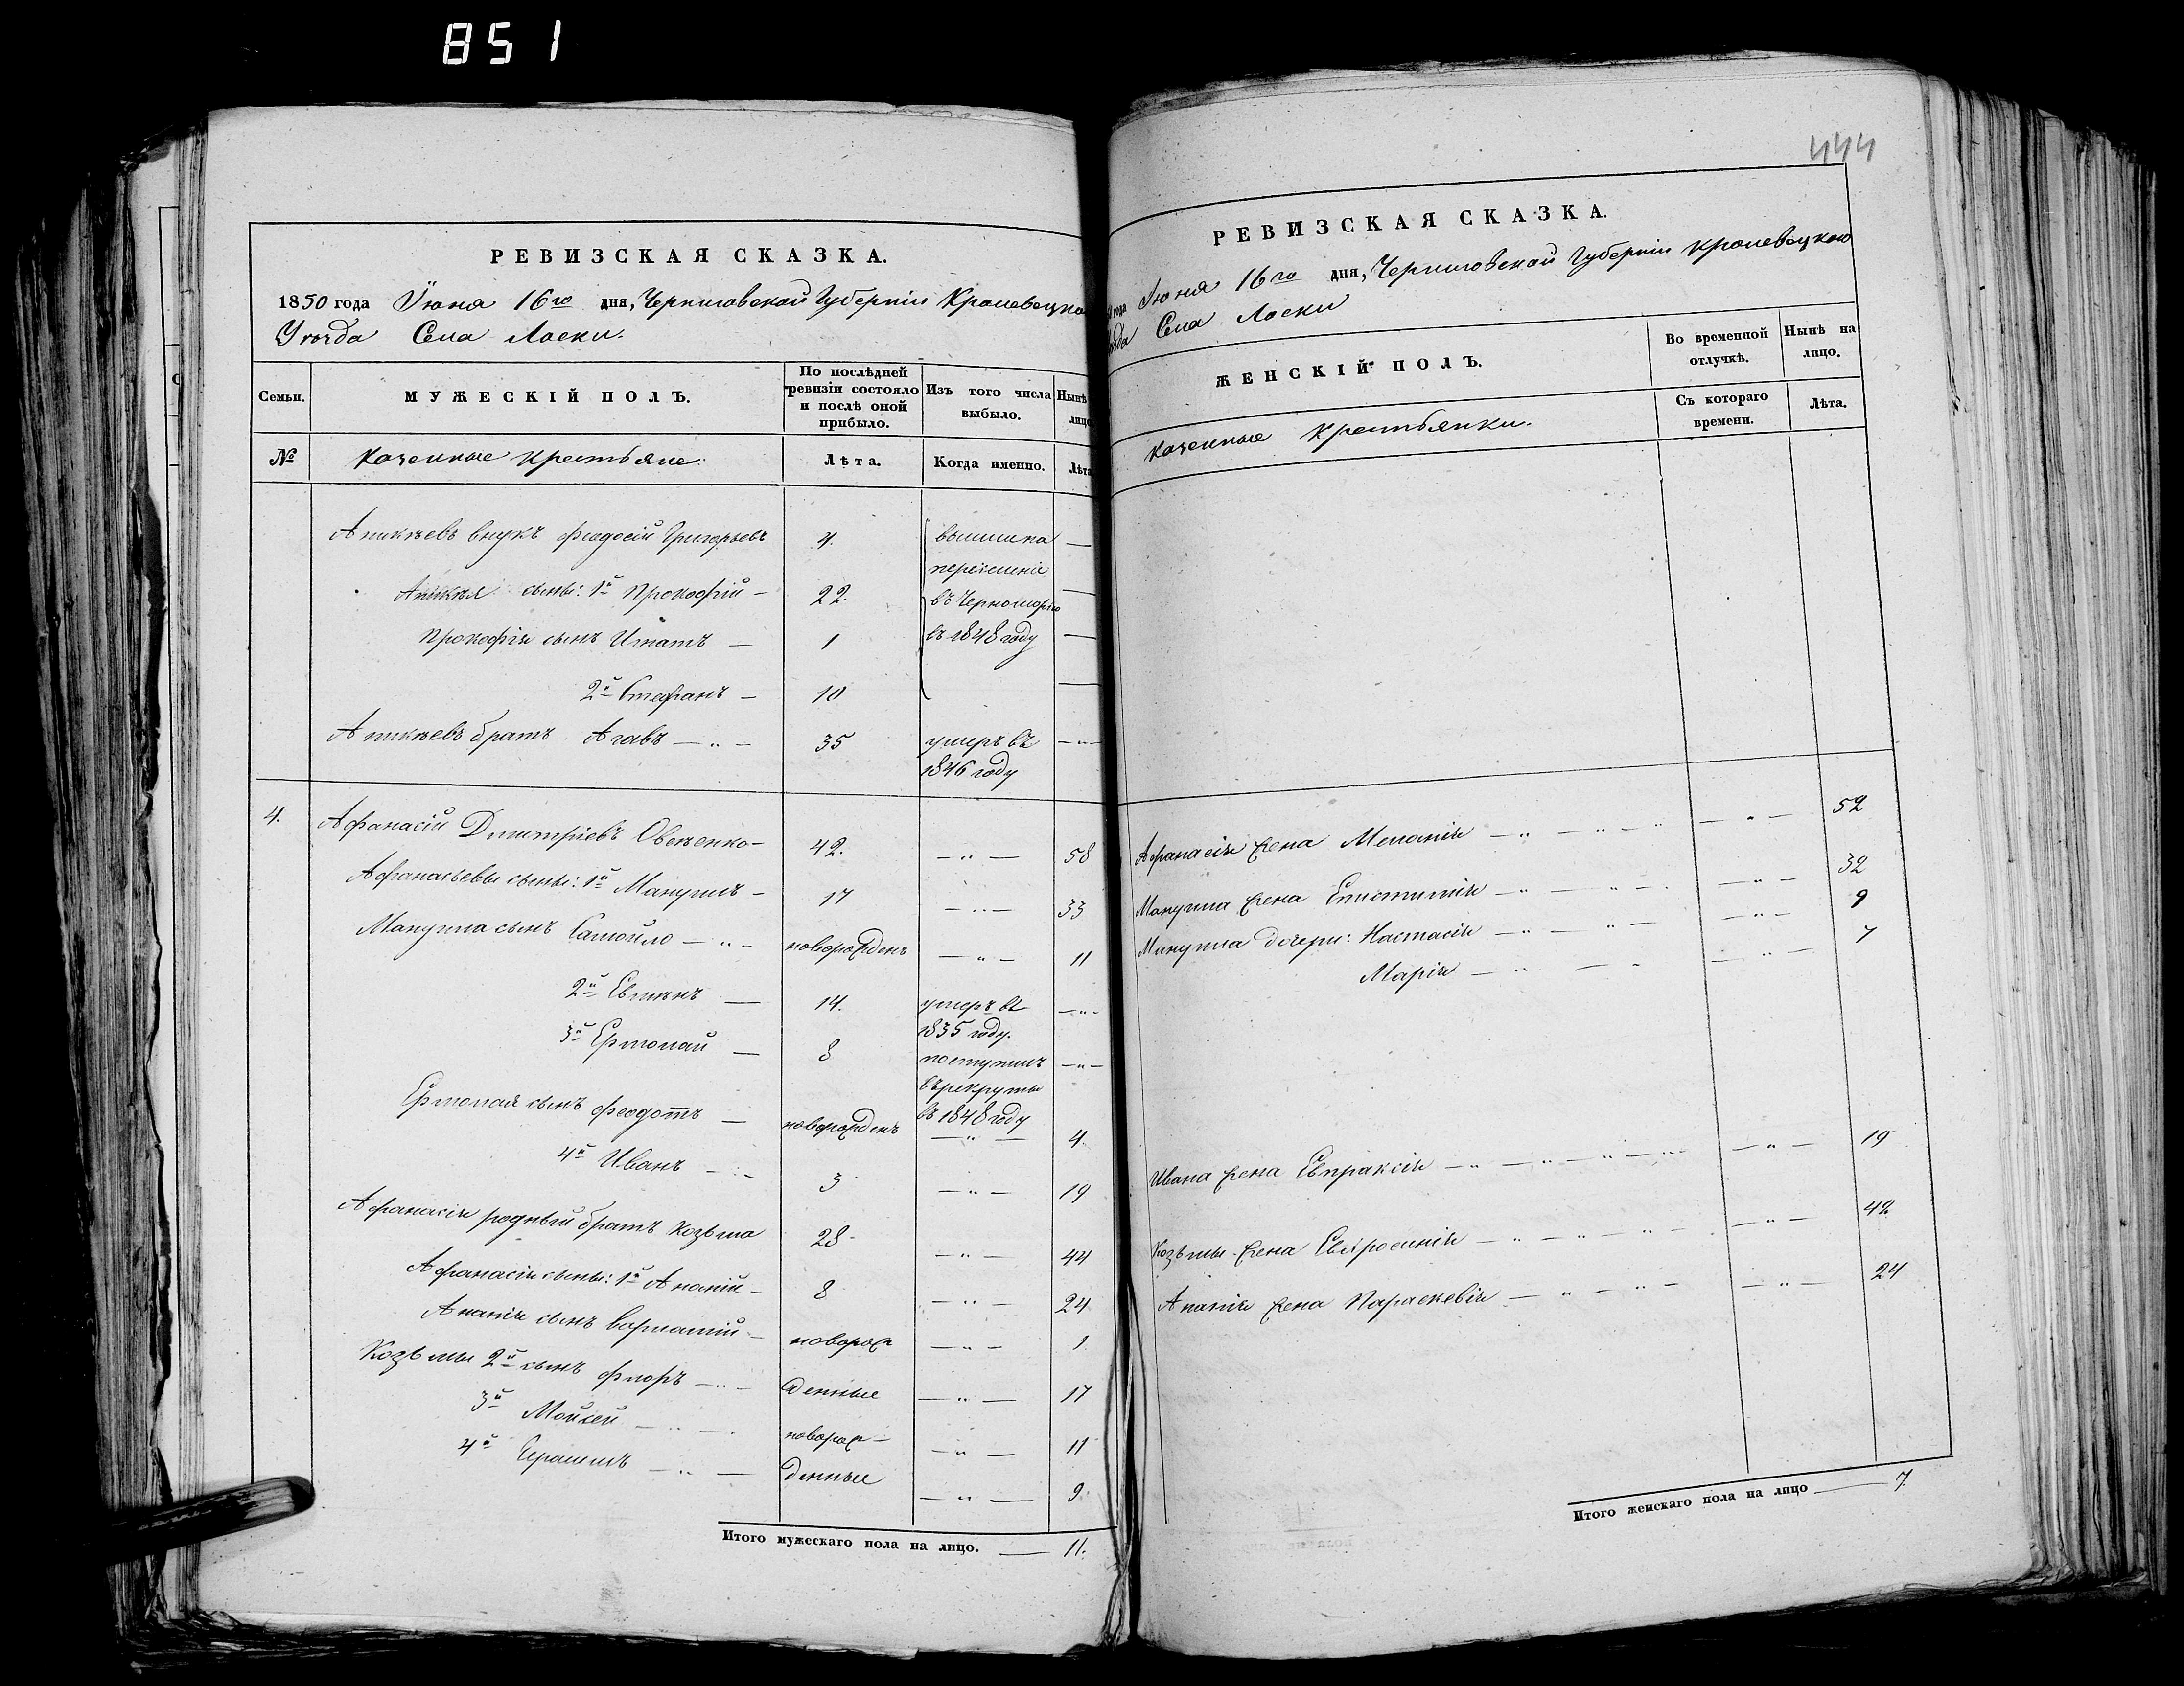 851
РЕВИЗСКАЯ СКАЗКА.
1850 года Іюня 16го дня, Черниговской Губерніи Кролевецка
Уѣзда Села Лоски.
Семьи.
МУЖЕСКІЙ ПОЛЪ.
По послѣдней ревизіи состояло и послѣ оной прибыло.
Изъ того числа выбыло.
Нынѣ лицо
№
Казенные крестьяне.
Лѣта.
Когда именно.
Лѣта
Аникѣевъ внукъ Феодосій Григорьевъ 4. вышли на —
переселеніе
Аникѣя сыны: 1й Прокофій — 22. въ Черноморію —
Прокофія сынъ Игнатъ — 1 въ 1848 году —
2й Стефанъ — 10 —
Аникѣевъ братъ 35 умеръ въ — " —
1846 году
4. Афанасій Дмитріевъ Овсѣенко — 42. — " — 58
Афанасьевы сыны: 1й Мануилъ — 17 — " — 33
Мануила сынъ Самойло — " — новорожденъ — " — 11
2й — 14. умеръ въ — " —
1835 году.
3й Ермолай — 8 поступилъ — " —
въ рекруты
въ 1848 году
Ермолая сынъ Феодотъ — новорожденъ — " — 4.
4й Иванъ — " — 3 — " — 19
Афанасія родный братъ Козьма 28 — " — 44
Афанасія сыны: 1й Ананій — 8 — " — 24
Ананія сынъ — новорож — " — 1
Козьмы 2й сынъ Флоръ — " — денные — " — 17
3й Мойсей — " — новорож — — " — 11
4й — " — денные — " — 9
Итого мужескаго пола на лицо. — 11.
444
РЕВИЗСКАЯ СКАЗКА.
года Іюня 16го дня, Черниговской Губерніи Кролевецкаго
Села Лоски
ЖЕНСКІЙ ПОЛЪ.
Во временной отлучкѣ.
Нынѣ на лицо.
Казенные крестьянки.
Съ котораго времени.
Лѣта.
Афанасія жена Меланія — " — " — " — " — 52
Мануила жена Епистимія — " — " — — " — 32
Мануила дочери: Настасія — " — " — — " — 9
Марія — " — " — " — 7
Ивана жена Евпраксія — " — " — " — — " — 19
Козьмы жена Евфросинія — " — " — " — — " — 42
Ананія жена Параскевія — " — " — — " — 24
Итого женскаго пола на лицо — 7.